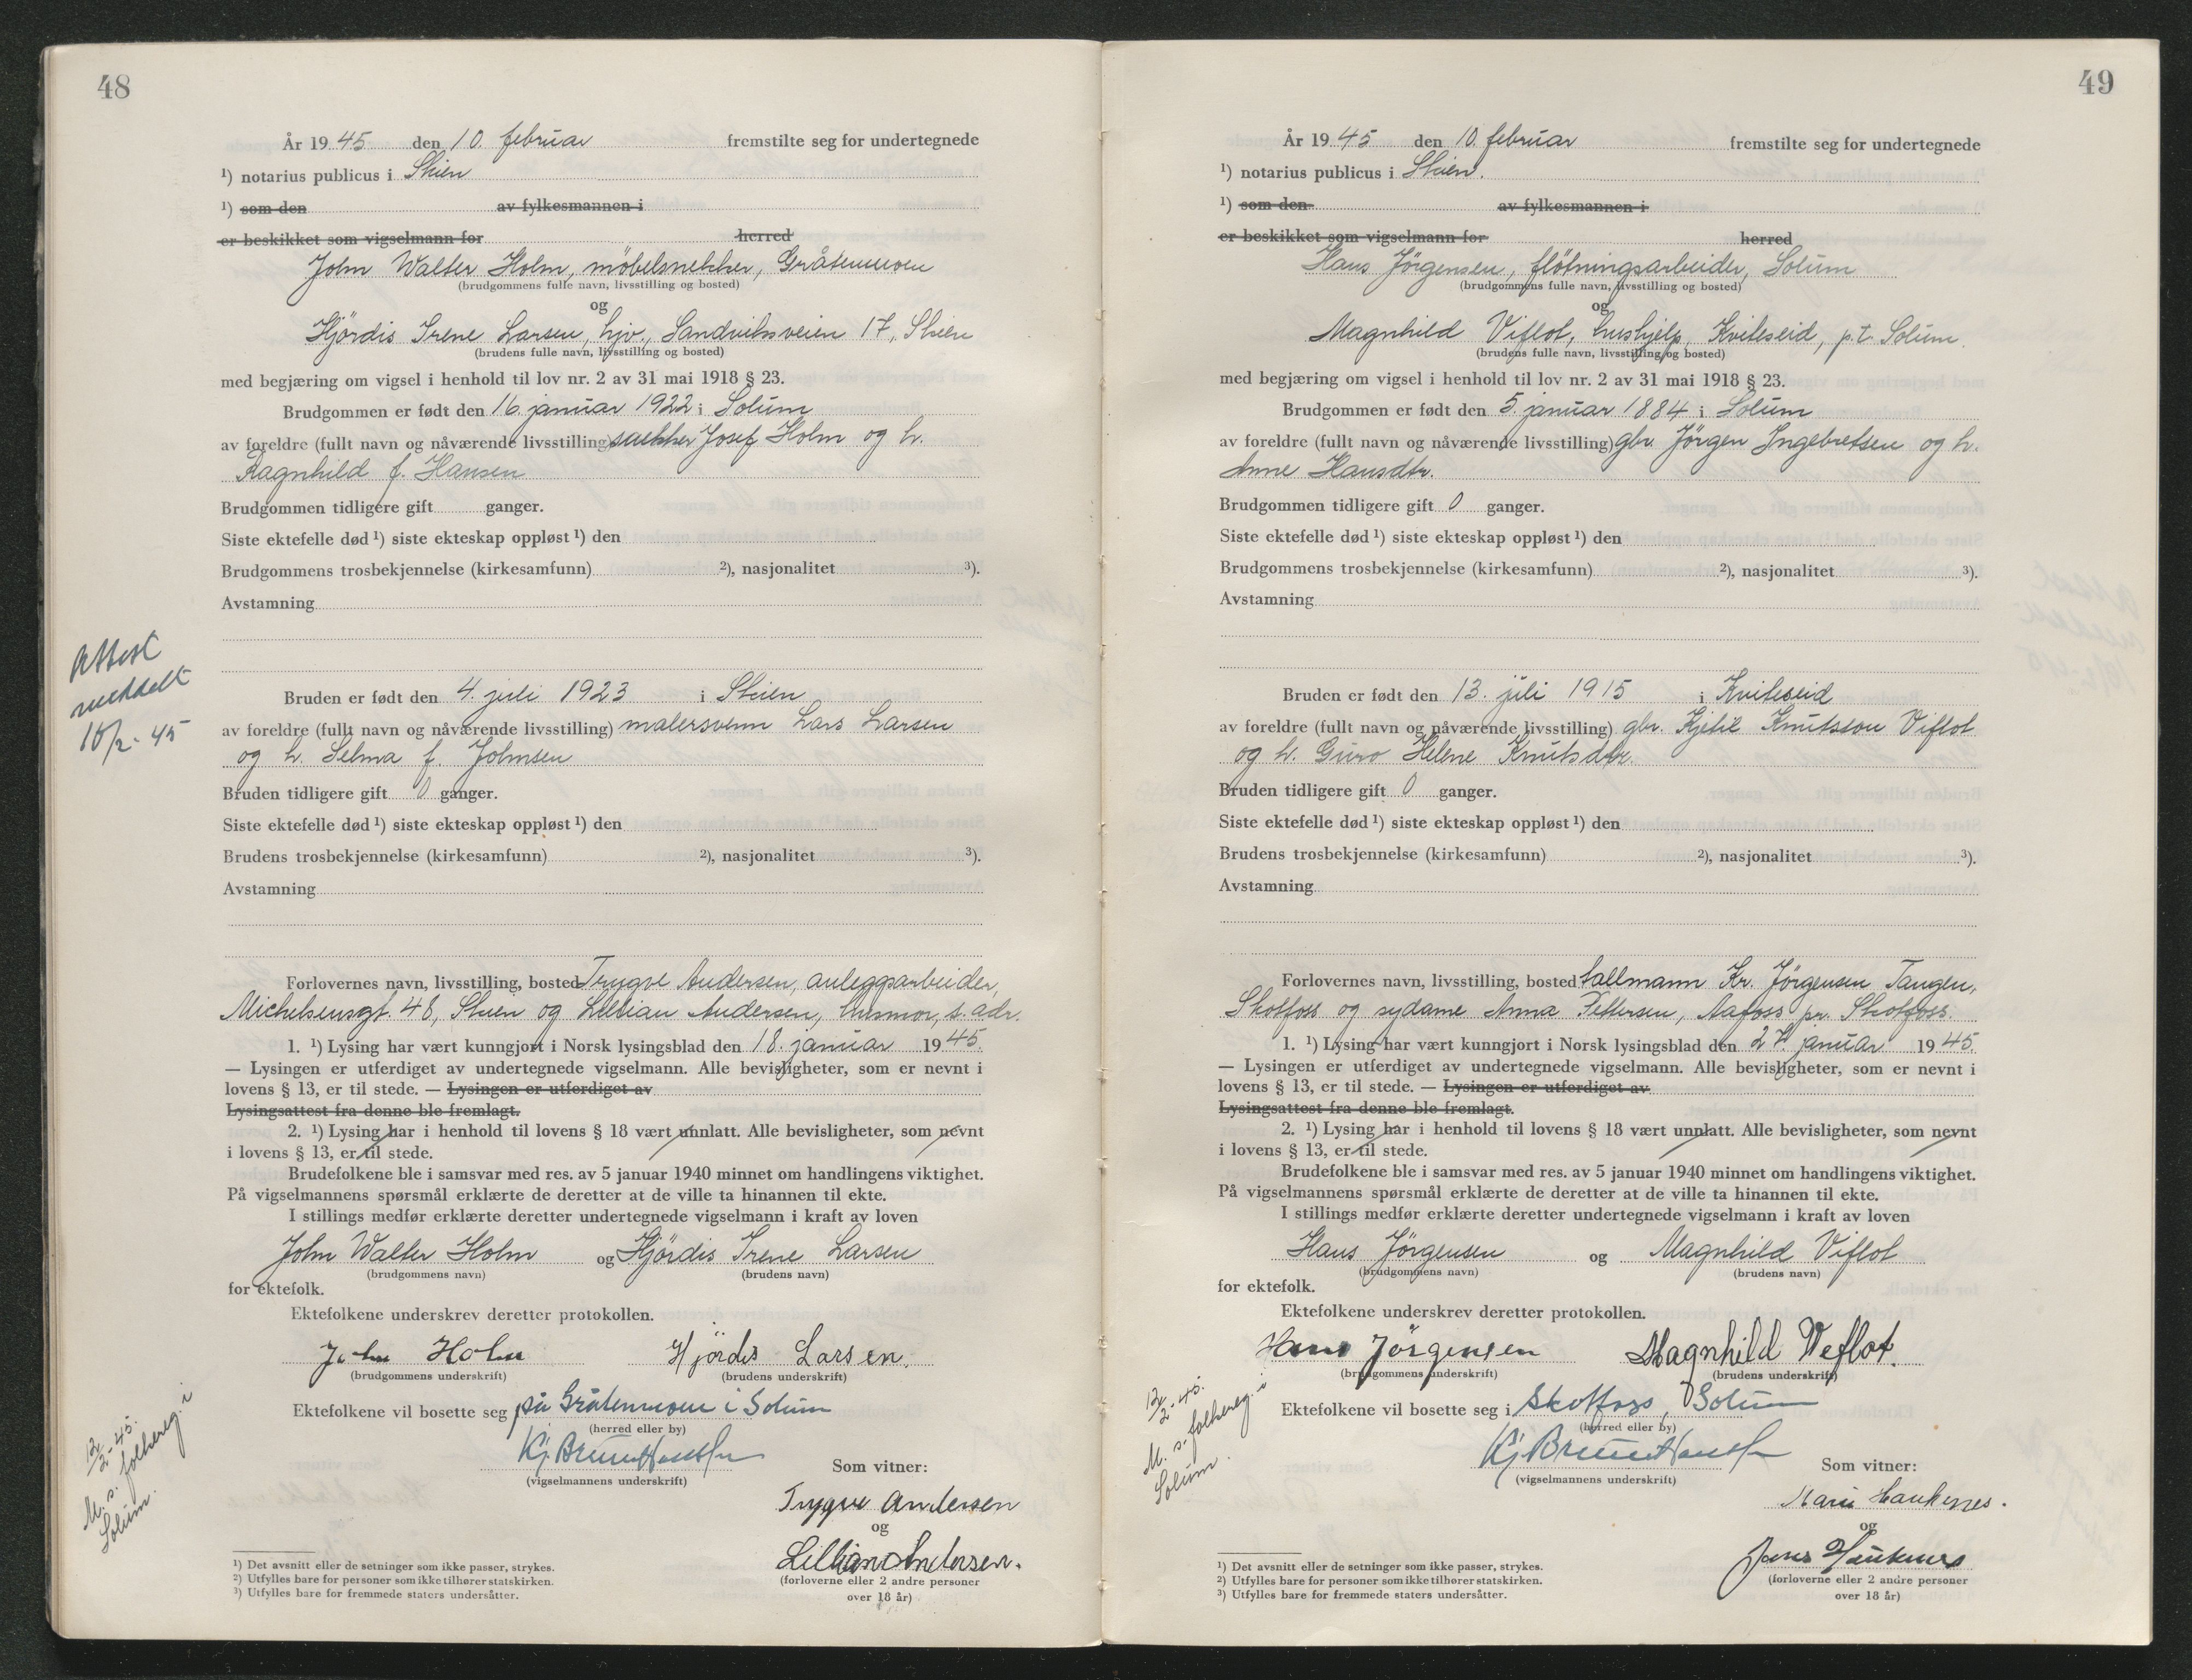 48
År 1945 den 10. februar fremstilte seg for undertegnede
¹) notarius publicus i Skien
¹) som den av fylkesmannen i
er beskikket som vigselmann for herred
John Walter Holm, möbelsnekker, Gråtenmoen
(brudgommens fulle navn, livsstilling og bosted)
og
Hjördis Irene Larsen, hjv., Sandviksveien 17, Skien
(brudens fulle navn, livsstilling og bosted)
med begjæring om vigsel i henhold til lov nr. 2 av 31 mai 1918 § 23.
Brudgommen er født den 16. januar 1922 i Solum
av foreldre (fullt navn og nåværende livsstilling) snekker Josef Holm og h.
Ragnhild f. Hansen
Brudgommen tidligere gift ganger.
Siste ektefelle død ¹) siste ekteskap oppløst ¹) den
Brudgommens trosbekjennelse (kirkesamfunn) ²), nasjonalitet ³).
Avstamning
Attest
meddelt
10/2-45
Bruden er født den 4. juli 1923 i Skien
av foreldre (fullt navn og nåværende livsstilling) malersvenn Lars Larsen
og h. Selma f. Johnsen
Bruden tidligere gift 0 ganger.
Siste ektefelle død ¹) siste ekteskap oppløst ¹) den
Brudens trosbekjennelse (kirkesamfunn) ²), nasjonalitet ³).
Avstamning
Forlovernes navn, livsstilling, bosted Trygve Andersen, anleggsarbeider,
Michelsensgt. 48, Skien og Lillian Andersen, husmor, s. adr.
1. ¹) Lysing har vært kunngjort i Norsk lysingsblad den 18. januar 1945.
— Lysingen er utferdiget av undertegnede vigselmann. Alle bevisligheter, som er nevnt i
lovens § 13, er til stede. — Lysingen er utferdiget av
Lysingsattest fra denne ble fremlagt.
2. ¹) Lysing har i henhold til lovens § 18 vært unnlatt. Alle bevisligheter, som nevnt
i lovens § 13, er til stede.
Brudefolkene ble i samsvar med res. av 5 januar 1940 minnet om handlingens viktighet.
På vigselmannens spørsmål erklærte de deretter at de ville ta hinannen til ekte.
I stillings medfør erklærte deretter undertegnede vigselmann i kraft av loven
John Walter Holm og Hjördis Irene Larsen
(brudgommens navn) (brudens navn)
for ektefolk.
Ektefolkene underskrev deretter protokollen.
John Holm Hjördis Larsen.
(brudgommens underskrift) (brudens underskrift)
Ektefolkene vil bosette seg på Gråtenmoen i Solum
(herred eller by)
(vigselmannens underskrift)
Som vitner:
Trygve Andersen
og
Lillian Andersen.
(forloverne eller 2 andre personer
over 18 år)
12/2-45.
M. s. folkereg. i
Solum.
¹) Det avsnitt eller de setninger som ikke passer, strykes.
²) Utfylles bare for personer som ikke tilhører statskirken.
³) Utfylles bare for fremmede staters undersåtter.
49
År 1945 den 10. februar fremstilte seg for undertegnede
¹) notarius publicus i Skien.
¹) som den av fylkesmannen i
er beskikket som vigselmann for herred
Hans Jörgensen, flötningsarbeider, Solum
(brudgommens fulle navn, livsstilling og bosted)
og
Magnhild Viflot, hushjelp, Kviteseid, p.t. Solum.
(brudens fulle navn, livsstilling og bosted)
med begjæring om vigsel i henhold til lov nr. 2 av 31 mai 1918 § 23.
Brudgommen er født den 5. januar 1884 i Solum
av foreldre (fullt navn og nåværende livsstilling) gbr. Jörgen Ingebretsen og h.
Anne Hansdtr.
Brudgommen tidligere gift 0 ganger.
Siste ektefelle død ¹) siste ekteskap oppløst ¹) den
Brudgommens trosbekjennelse (kirkesamfunn) ²), nasjonalitet ³).
Avstamning
Bruden er født den 13. juli 1915 i Kviteseid
av foreldre (fullt navn og nåværende livsstilling) gbr. Kjetil Knutsson Viflot
og h. Guro Helene Knutsdtr.
Bruden tidligere gift 0 ganger.
Siste ektefelle død ¹) siste ekteskap oppløst ¹) den
Brudens trosbekjennelse (kirkesamfunn) ²), nasjonalitet ³).
Avstamning
Forlovernes navn, livsstilling, bosted tallmann Kr. Jörgensen Tangen,
Skotfoss og sydame Anna Pettersen, Aafoss pr. Skotfoss.
1. ¹) Lysing har vært kunngjort i Norsk lysingsblad den 27. januar 1945.
— Lysingen er utferdiget av undertegnede vigselmann. Alle bevisligheter, som er nevnt i
lovens § 13, er til stede. — Lysingen er utferdiget av
Lysingsattest fra denne ble fremlagt.
2. ¹) Lysing har i henhold til lovens § 18 vært unnlatt. Alle bevisligheter, som nevnt
i lovens § 13, er til stede.
Brudefolkene ble i samsvar med res. av 5 januar 1940 minnet om handlingens viktighet.
På vigselmannens spørsmål erklærte de deretter at de ville ta hinannen til ekte.
I stillings medfør erklærte deretter undertegnede vigselmann i kraft av loven
Hans Jörgensen og Magnhild Viflot
(brudgommens navn) (brudens navn)
for ektefolk.
Ektefolkene underskrev deretter protokollen.
Hans Jörgensen Magnhild Veflot.
(brudgommens underskrift) (brudens underskrift)
Ektefolkene vil bosette seg i Skotfoss, Solum
(herred eller by)
(vigselmannens underskrift)
Som vitner:
Marie Haukenes.
og
Jens Haukenes
(forloverne eller 2 andre personer
over 18 år)
12/2-45.
M. s. folkereg. i
Solum.
¹) Det avsnitt eller de setninger som ikke passer, strykes.
²) Utfylles bare for personer som ikke tilhører statskirken.
³) Utfylles bare for fremmede staters undersåtter.